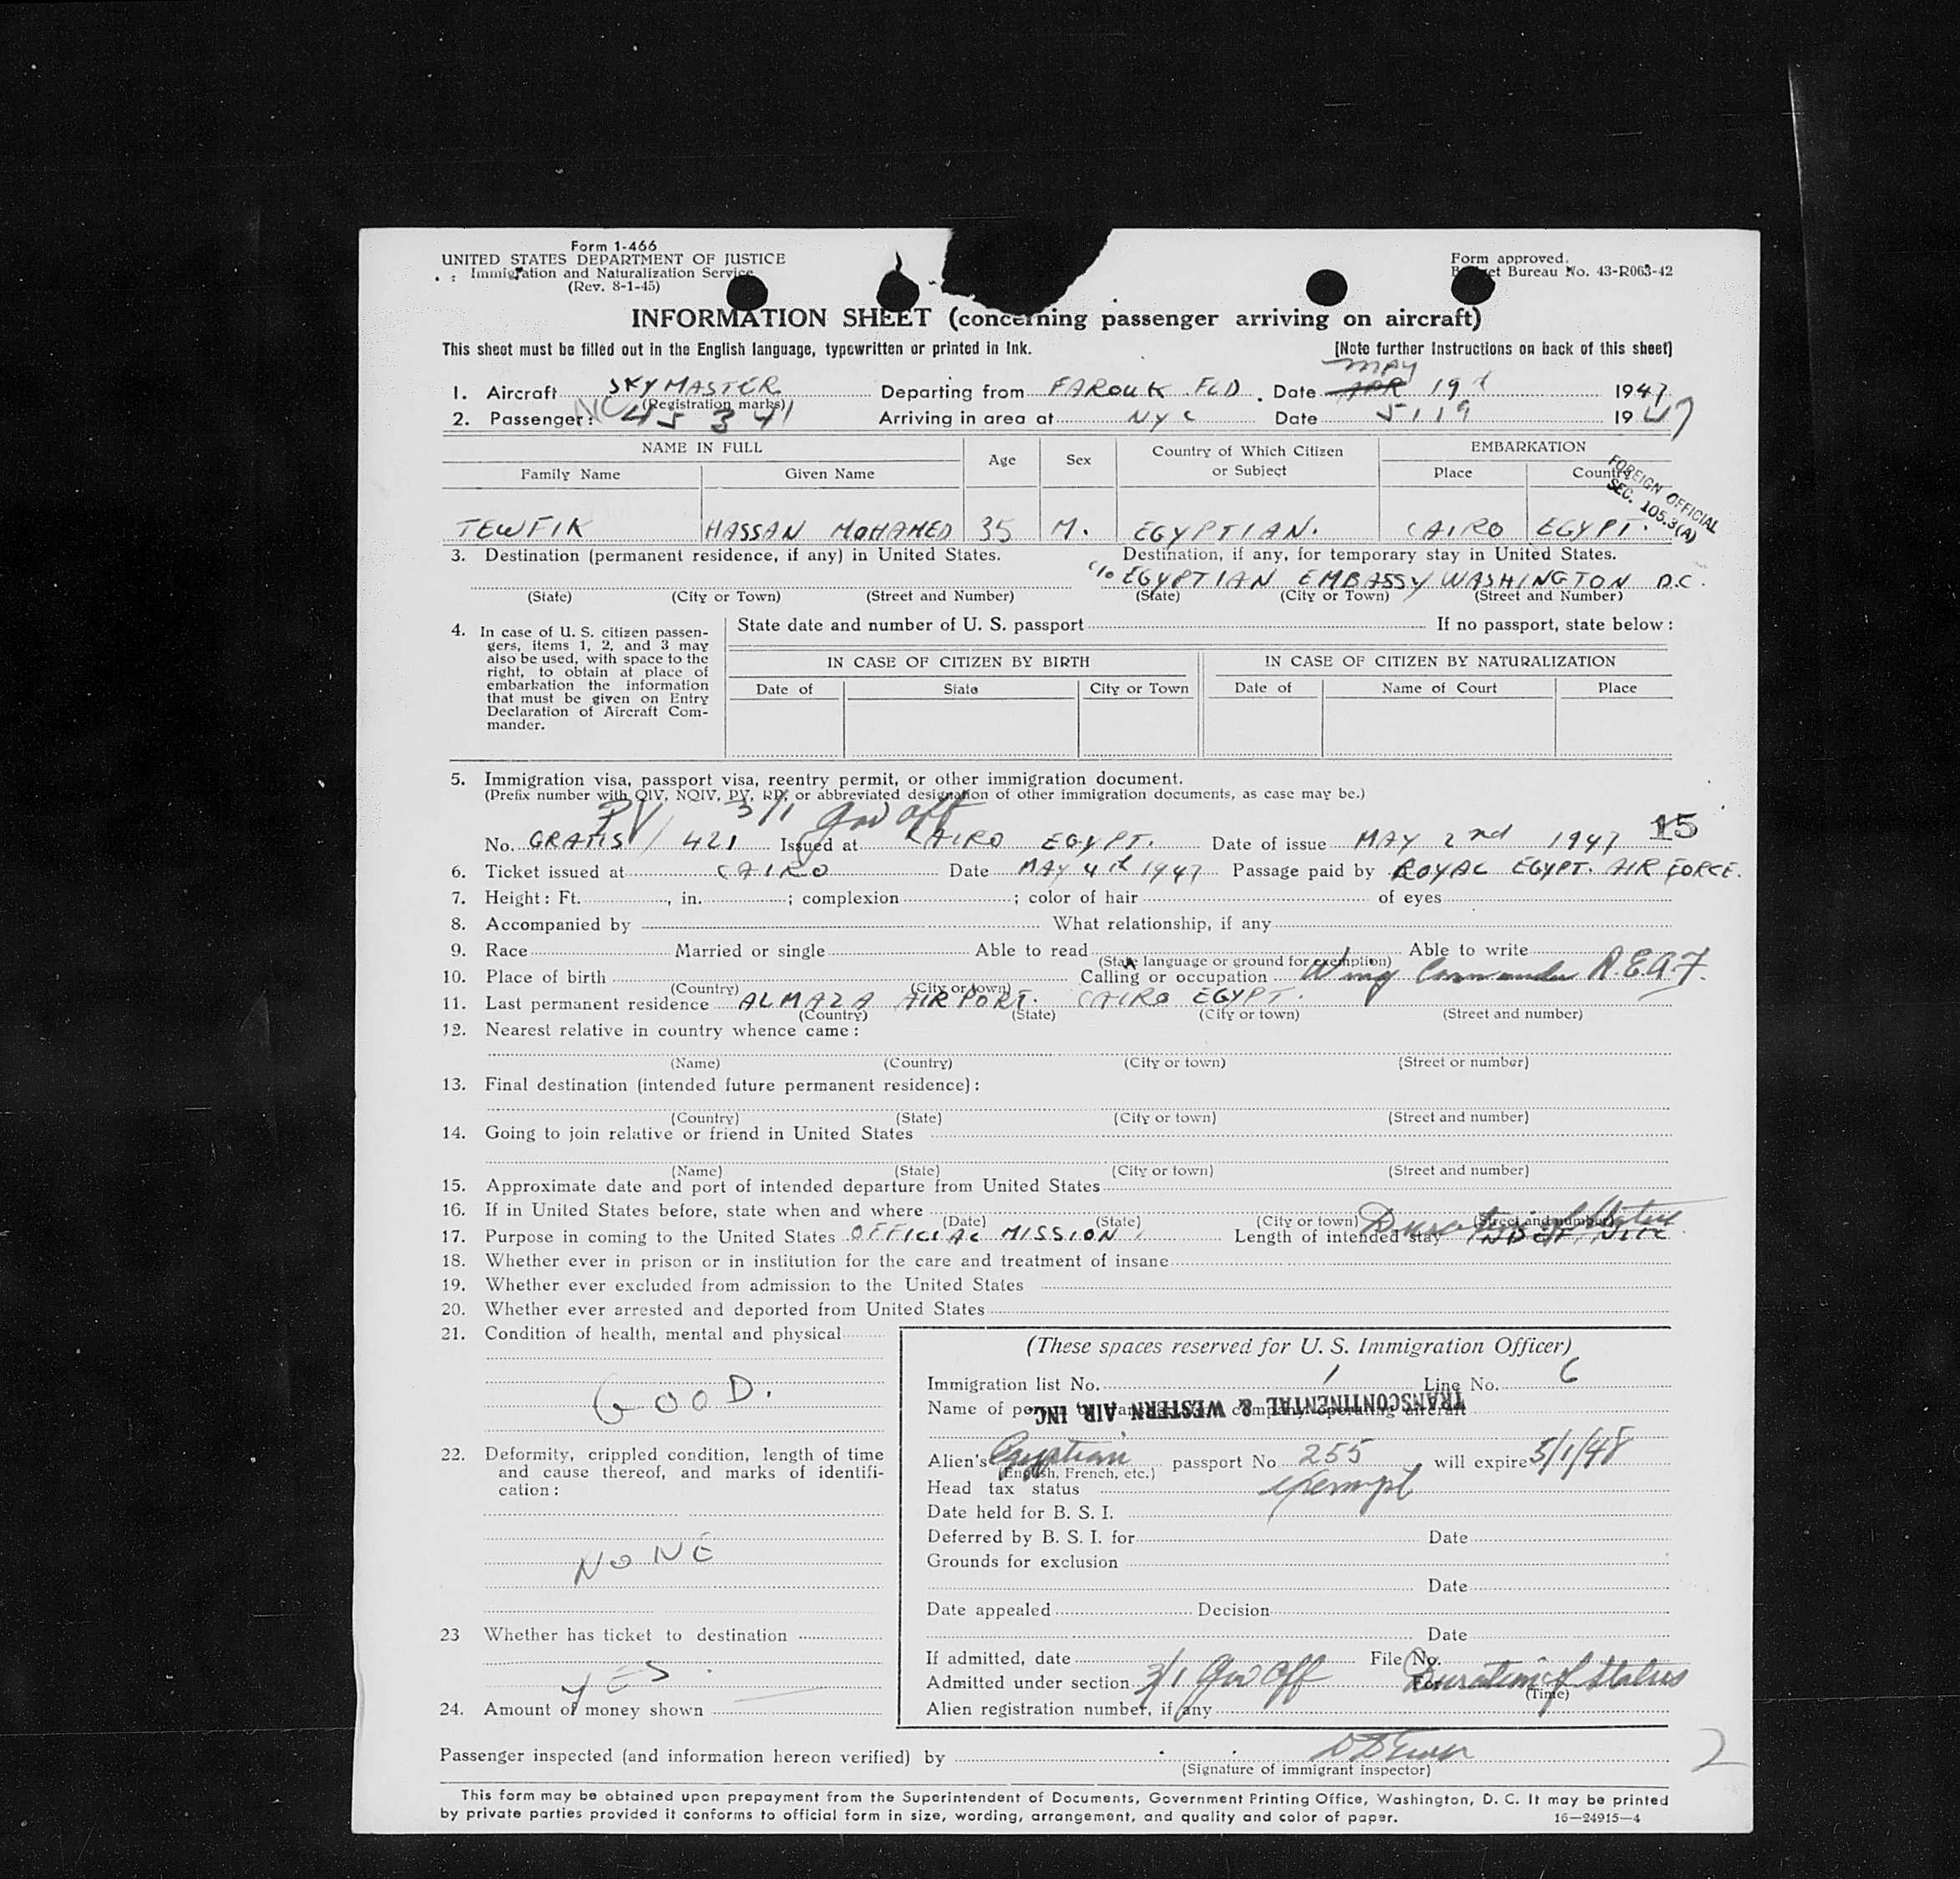 Form 1-466
UNITED STATES DEPARTMENT OF JUSTICE
Immigration and Naturalization Service
(Rev. 8-1-45)
Form approved.
Budget Bureau No. 43-R063-42
INFORMATION SHEET (concerning passenger arriving on aircraft)
This sheet must be filled out in the English language, typewritten or printed in ink.
[Note further instructions on back of this sheet]
MAY
1. Aircraft SKYMASTER Departing from FAROUK FLD. Date APR 19th 1947
(Registration marks)
2. Passenger: NC 45341 Arriving in area at NYC Date 5119 1947
NAME IN FULL Age Sex Country of Which Citizen or Subject EMBARKATION
Family Name Given Name Place Country
FOREIGN OFFICIAL
SEC. 105.3(A)
TEWFIK HASSAN MOHAMED 35 M. EGYPTIAN. CAIRO EGYPT.
3. Destination (permanent residence, if any) in United States. Destination, if any, for temporary stay in United States.
c/o EGYPTIAN EMBASSY WASHINGTON D.C.
(State) (City or Town) (Street and Number) (State) (City or Town) (Street and Number)
4. In case of U. S. citizen passen-
gers, items 1, 2, and 3 may
also be used, with space to the
right, to obtain at place of
embarkation the information
that must be given on Entry
Declaration of Aircraft Com-
mander.
State date and number of U. S. passport If no passport, state below:
IN CASE OF CITIZEN BY BIRTH IN CASE OF CITIZEN BY NATURALIZATION
Date of State City or Town Date of Name of Court Place
5. Immigration visa, passport visa, reentry permit, or other immigration document.
(Prefix number with QIV, NQIV, PV, RP, or abbreviated designation of other immigration documents, as case may be.)
PV 3/1 Gov off
No. GRATIS / 421 Issued at CAIRO EGYPT. Date of issue MAY 2nd 1947 15
6. Ticket issued at CAIRO Date MAY 4th 1947 Passage paid by ROYAL EGYPT. AIR FORCE.
7. Height: Ft. , in. ; complexion ; color of hair of eyes
8. Accompanied by What relationship, if any
9. Race Married or single Able to read Able to write
(State language or ground for exemption)
10. Place of birth Calling or occupation Wing Commander R.E.A.F.
(Country) (City or town)
11. Last permanent residence ALMAZA AIRPORT. CAIRO EGYPT.
(Country) (State) (City or town) (Street and number)
12. Nearest relative in country whence came:
(Name) (Country) (City or town) (Street or number)
13. Final destination (intended future permanent residence):
(Country) (State) (City or town) (Street and number)
14. Going to join relative or friend in United States
(Name) (State) (City or town) (Street and number)
15. Approximate date and port of intended departure from United States
16. If in United States before, state when and where
(Date) (State) (City or town) (Street and number)
Duration of Status
17. Purpose in coming to the United States OFFICIAL MISSION, Length of intended stay
18. Whether ever in prison or in institution for the care and treatment of insane
19. Whether ever excluded from admission to the United States
20. Whether ever arrested and deported from United States
21. Condition of health, mental and physical
GOOD.
22. Deformity, crippled condition, length of time
and cause thereof, and marks of identifi-
cation:
NONE
23 Whether has ticket to destination
YES.
24. Amount of money shown
(These spaces reserved for U. S. Immigration Officer)
Immigration list No. 1 Line No. 6
Name of person or company operating aircraft
TRANSCONTINENTAL & WESTERN AIR, INC.
Alien's Egyptian passport No 255 will expire 5/1/48
(English, French, etc.)
Head tax status exempt
Date held for B. S. I.
Deferred by B. S. I. for Date
Grounds for exclusion
Date
Date appealed Decision
Date
If admitted, date File No.
Admitted under section 3/1 Gov Off For Duration of Status
(Time)
Alien registration number, if any
Passenger inspected (and information hereon verified) by
(Signature of immigrant inspector)
2
This form may be obtained upon prepayment from the Superintendent of Documents, Government Printing Office, Washington, D. C. It may be printed
by private parties provided it conforms to official form in size, wording, arrangement, and quality and color of paper. 16—24915—4